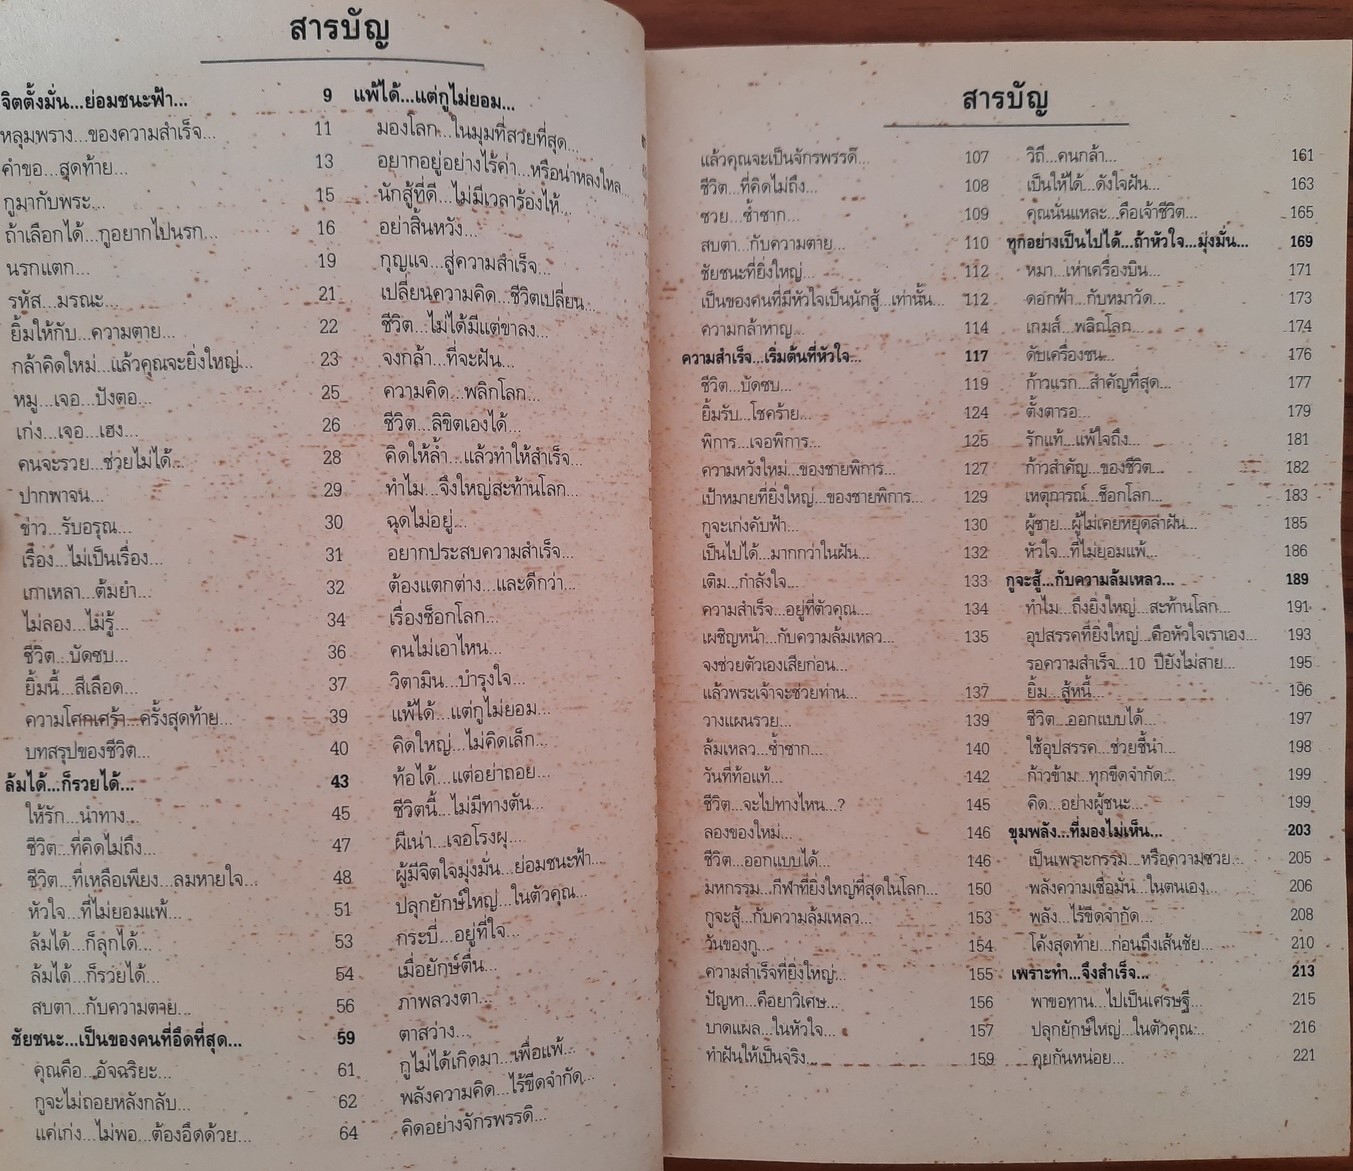 สารบัญ
จิตตั้งมั่น...ย่อมชนะฟ้า... 9
หลุมพราง...ของความสำเร็จ... 11
คำขอ...สุดท้าย... 13
กูมากับพระ... 15
ถ้าเลือกได้...กูอยากไปนรก... 16
นรกแตก... 19
รหัส...มรณะ... 21
ยิ้มให้กับ...ความตาย... 22
กล้าคิดใหม่...แล้วคุณจะยิ่งใหญ่... 23
หมู...เจอ...ปังตอ... 25
เก่ง...เจอ...เฮง... 26
คนจะรวย...ช่วยไม่ได้... 28
ปากพาจน... 29
ข่าว...รับอรุณ... 30
เรื่อง...ไม่เป็นเรื่อง... 31
เกาเหลา...ต้มยำ... 32
ไม่ลอง...ไม่รู้... 34
ชีวิต...บัดซบ... 36
ยิ้มนี้...สีเลือด... 37
ความโศกเศร้า...ครั้งสุดท้าย... 39
บทสรุปของชีวิต... 40
ล้มได้...ก็รวยได้... 43
ให้รัก...นำทาง... 45
ชีวิต...ที่คิดไม่ถึง... 47
ชีวิต...ที่เหลือเพียง...ลมหายใจ... 48
หัวใจ...ที่ไม่ยอมแพ้... 51
ล้มได้...ก็ลุกได้... 53
ล้มได้...ก็รวยได้... 54
สบตา...กับความตาย... 56
ชัยชนะ...เป็นของคนที่อึดที่สุด... 59
คุณคือ...อัจฉริยะ... 61
กูจะไม่ถอยหลังกลับ... 62
แค่เก่ง...ไม่พอ...ต้องอึดด้วย... 64
แพ้ได้...แต่กูไม่ยอม...
มองโลก...ในมุมที่สวยที่สุด...
อยากอยู่อย่างไร้ค่า...หรือน่าหลงใหล...
นักสู้ที่ดี...ไม่มีเวลาร้องไห้...
อย่าสิ้นหวัง...
กุญแจ...สู่ความสำเร็จ...
เปลี่ยนความคิด...ชีวิตเปลี่ยน...
ชีวิต...ไม่ได้มีแต่ขาลง...
จงกล้า...ที่จะฝัน...
ความคิด...พลิกโลก...
ชีวิต...ลิขิตเองได้...
คิดให้ล้ำ...แล้วทำให้สำเร็จ...
ทำไม...จึงใหญ่สะท้านโลก...
ฉุดไม่อยู่...
อยากประสบความสำเร็จ...
ต้องแตกต่าง...และดีกว่า...
เรื่องช็อกโลก...
คนไม่เอาไหน...
วิตามิน...บำรุงใจ...
แพ้ได้...แต่กูไม่ยอม...
คิดใหญ่...ไม่คิดเล็ก...
ท้อได้...แต่อย่าถอย...
ชีวิตนี้...ไม่มีทางตัน...
ผีเน่า...เจอโรงผุ...
ผู้มีจิตใจมุ่งมั่น...ย่อมชนะฟ้า...
ปลุกยักษ์ใหญ่...ในตัวคุณ...
กระบี่...อยู่ที่ใจ...
เมื่อยักษ์ตื่น...
ภาพลวงตา...
ตาสว่าง...
กูไม่ได้เกิดมา...เพื่อแพ้...
พลังความคิด...ไร้ขีดจำกัด...
คิดอย่างจักรพรรดิ...
สารบัญ
แล้วคุณจะเป็นจักรพรรดิ์... 107
ชีวิต...ที่คิดไม่ถึง... 108
ซวย...ซ้ำซาก... 109
สบตา...กับความตาย... 110
ชัยชนะที่ยิ่งใหญ่... 112
เป็นของคนที่มีหัวใจเป็นนักสู้...เท่านั้น... 112
ความกล้าหาญ... 114
ความสำเร็จ...เริ่มต้นที่หัวใจ... 117
ชีวิต...บัดซบ... 119
ยิ้มรับ...โชคร้าย... 124
พิการ...เจอพิการ... 125
ความหวังใหม่...ของชายพิการ... 127
เป้าหมายที่ยิ่งใหญ่...ของชายพิการ... 129
กูจะเก่งคับฟ้า... 130
เป็นไปได้...มากกว่าในฝัน... 132
เติม...กำลังใจ... 133
ความสำเร็จ...อยู่ที่ตัวคุณ... 134
เผชิญหน้า...กับความล้มเหลว... 135
จงช่วยตัวเองเสียก่อน...
แล้วพระเจ้าจะช่วยท่าน... 137
วางแผนรวย... 139
ล้มเหลว...ซ้ำซาก... 140
วันที่ท้อแท้... 142
ชีวิต...จะไปทางไหน...? 145
ลองของใหม่... 146
ชีวิต...ออกแบบได้... 146
มหกรรม...กีฬาที่ยิ่งใหญ่ที่สุดในโลก... 150
กูจะสู้...กับความล้มเหลว... 153
วันของกู... 154
ความสำเร็จที่ยิ่งใหญ่... 155
ปัญหา...คือยาวิเศษ... 156
บาดแผล...ในหัวใจ... 157
ทำฝันให้เป็นจริง... 159
วิถี...คนกล้า... 161
เป็นให้ได้...ดังใจฝัน... 163
คุณนั่นแหละ...คือเจ้าชีวิต... 165
ทุกอย่างเป็นไปได้...ถ้าหัวใจ...มุ่งมั่น... 169
หมา...เห่าเครื่องบิน... 171
ดอกฟ้า...กับหมาวัด... 173
เกมส์...พลิกโลก... 174
ดับเครื่องชน... 176
ก้าวแรก...สำคัญที่สุด... 177
ตั้งตารอ... 179
รักแท้...แพ้ใจถึง... 181
ก้าวสำคัญ...ของชีวิต... 182
เหตุการณ์...ช็อกโลก... 183
ผู้ชาย...ผู้ไม่เคยหยุดล่าฝัน... 185
หัวใจ...ที่ไม่ยอมแพ้... 186
กูจะสู้...กับความล้มเหลว... 189
ทำไม...ถึงยิ่งใหญ่...สะท้านโลก... 191
อุปสรรคที่ยิ่งใหญ่...คือหัวใจเราเอง... 193
รอความสำเร็จ...10 ปียังไม่สาย... 195
ยิ้ม...สู้หนี้... 196
ชีวิต...ออกแบบได้... 197
ใช้อุปสรรค...ช่วยชี้นำ... 198
ก้าวข้าม...ทุกขีดจำกัด... 199
คิด...อย่างผู้ชนะ... 199
ขุมพลัง...ที่มองไม่เห็น... 203
เป็นเพราะกรรม...หรือความซวย... 205
พลังความเชื่อมั่น...ในตนเอง... 206
พลัง...ไร้ขีดจำกัด... 208
โค้งสุดท้าย...ก่อนถึงเส้นชัย... 210
เพราะทำ...จึงสำเร็จ... 213
พาขอทาน...ไปเป็นเศรษฐี... 215
ปลุกยักษ์ใหญ่...ในตัวคุณ... 216
คุยกันหน่อย... 221